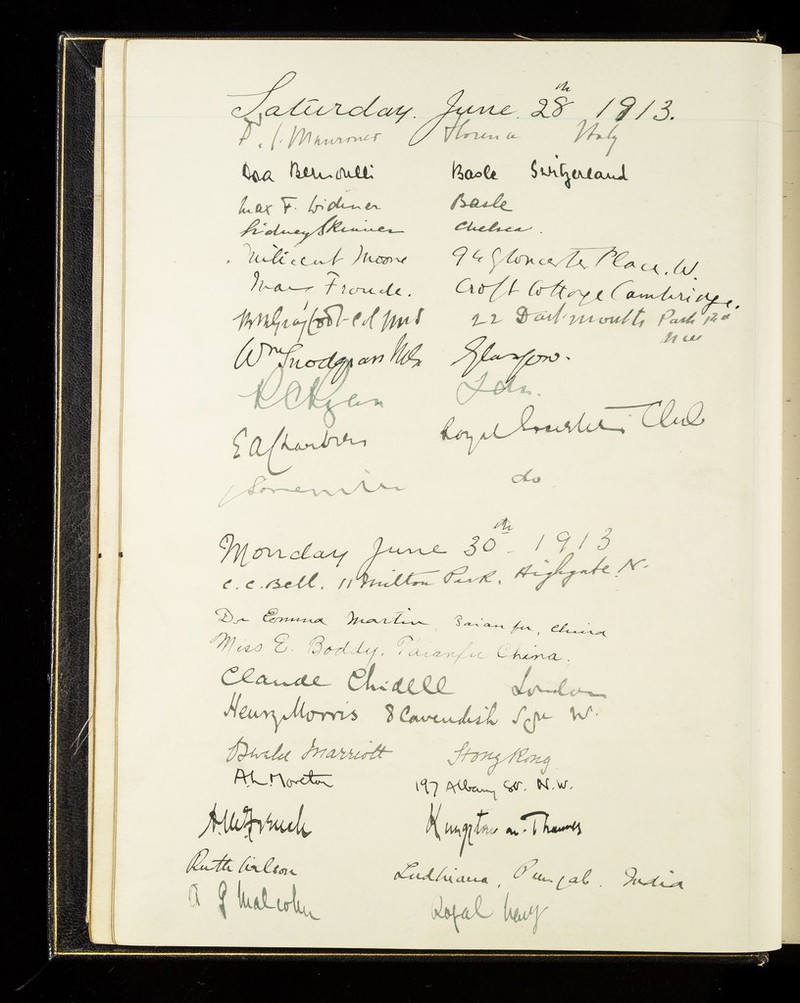 Saturday. June. 28th 1913.
Florence Italy
Dora Bernoulli Basle Switzerland
Max F. Widmer Basle
Sidney Skinner Chelsea.
Milicent Moore 94 Gloucester Place. W.
Mary Froude. Croft Cottage Cambridge.
22 Dartmouth Park Rd
NW
Wm Snodgrass Glasgow.
Ldn.
E A Chambers Royal Club
do
Monday June 30th 1913
C. C. Bell. 11 Milton Park. Highgate. N.
Dr Emma Martin, Taianfu, China
Miss E. Boddy. Taianfu China.
Claude Chidell London
Henry Morris 8 Cavendish Sqre W.
Oswald Marriott Hong Kong
A. L. Moreton 197 Albany St. N.W.
Kingston on Thames
Ruth Wilson Ludhiana, Punjab. India
A G Malcolm Royal Navy